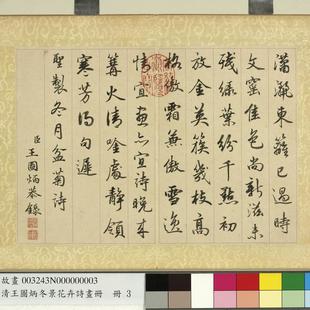 瀟灑東籬已過時
文窗佳色尚新滋未
殘綠葉紛千點初
放金英簇幾枝高
格傲霜兼傲雪逸
情宜畫亦宜詩晚來
篝火清吟處靜領
寒芳得句遲
聖製冬月盆菊詩
臣王圖炳恭錄
故畫 003243N000000003
清王圖炳冬景花卉詩畫冊 冊 3